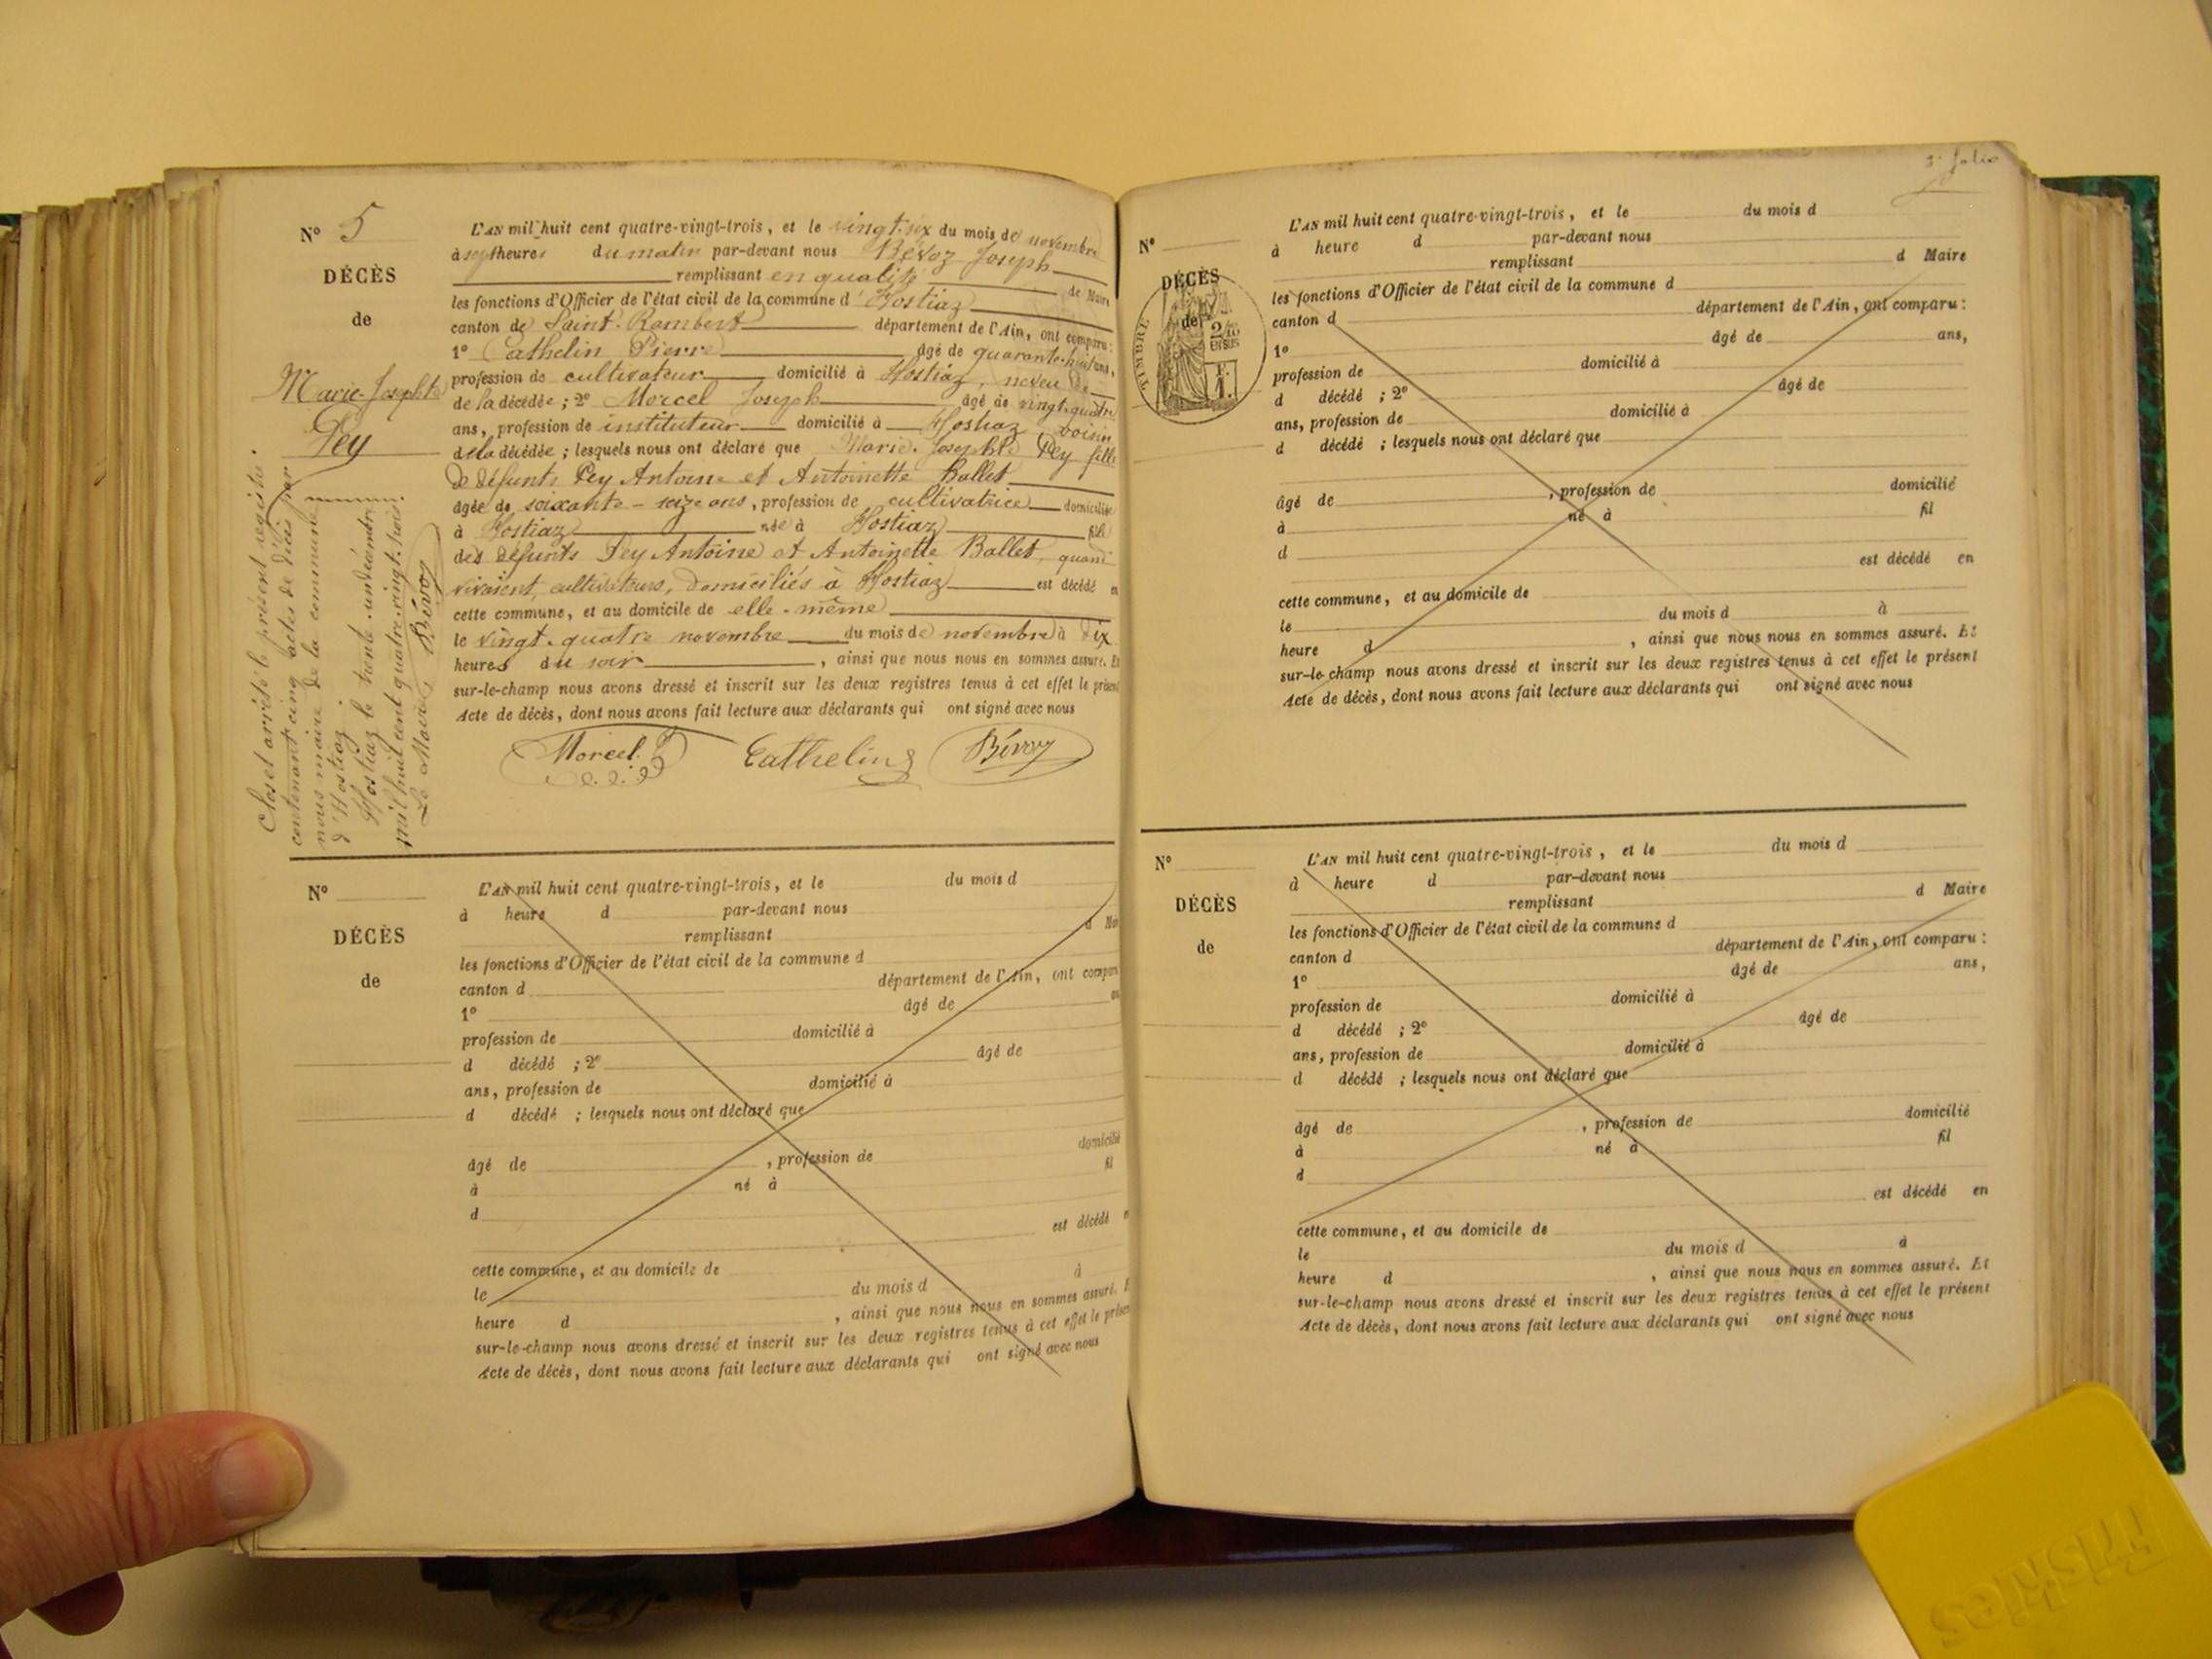 N° 5
DÉCÈS
de
Marie-Josephte
Pey
L'AN mil huit cent quatre-vingt-trois, et le vingt-six du mois de novembre
à sept heures du matin par-devant nous Bévoz Joseph
remplissant en qualité de Maire
les fonctions d'Officier de l'état civil de la commune d'Hostiaz
canton de Saint-Rambert département de l'Ain, ont comparu :
1° Cathelin Pierre âgé de quarante-huit ans,
profession de cultivateur domicilié à Hostiaz, neveu de
de la décédée ; 2° Morcel Joseph âgé de vingt-quatre
ans, profession de instituteur domicilié à Hostiaz voisin
de la décédée ; lesquels nous ont déclaré que Marie-Josephte Pey fille
de défunts Pey Antoine et Antoinette Ballet
âgée de soixante-seize ans, profession de cultivatrice domiciliée
à Hostiaz née à Hostiaz fille
des défunts Pey Antoine et Antoinette Ballet, quand
vivaient cultivateurs, domiciliés à Hostiaz est décédé en
cette commune, et au domicile de elle-même
le vingt-quatre novembre du mois de novembre à dix
heures du soir, ainsi que nous nous en sommes assuré. Et
sur-le-champ nous avons dressé et inscrit sur les deux registres tenus à cet effet le présent
Acte de décès, dont nous avons fait lecture aux déclarants qui ont signé avec nous
Morcel J Cathelin Bévoz
Clos et arrêté le présent registre
contenant cinq actes de décès par
nous maire de la commune
d'Hostiaz.
Hostiaz le trente-un décembre
mil huit cent quatre-vingt-trois.
Le Maire, Bévoz
N°
DÉCÈS
de
L'AN mil huit cent quatre-vingt-trois, et le du mois d
à heure d par-devant nous
remplissant d Mai
les fonctions d'Officier de l'état civil de la commune d
canton d département de l'Ain, ont comparu
1° âgé de an
profession de domicilié à
d décédé ; 2° âgé de
ans, profession de domicilié à
d décédé ; lesquels nous ont déclaré que
âgé de , profession de domicilié
à né à fil
d
est décédé e
cette commune, et au domicile de
le du mois d à
heure d , ainsi que nous nous en sommes assuré. E
sur-le-champ nous avons dressé et inscrit sur les deux registres tenus à cet effet le présen
Acte de décès, dont nous avons fait lecture aux déclarants qui ont signé avec nous
3e folio
N°
DÉCÈS
de
TIMBRE
2/10
EN SUS
F.
1.
L'AN mil huit cent quatre-vingt-trois, et le du mois d
à heure d par-devant nous
remplissant d Maire
les fonctions d'Officier de l'état civil de la commune d
canton d département de l'Ain, ont comparu :
1° âgé de ans,
profession de domicilié à
d décédé ; 2° âgé de
ans, profession de domicilié à
d décédé ; lesquels nous ont déclaré que
âgé de , profession de domicilié
à né à fil
d
est décédé en
cette commune, et au domicile de
le du mois d à
heure d , ainsi que nous nous en sommes assuré. Et
sur-le-champ nous avons dressé et inscrit sur les deux registres tenus à cet effet le présent
Acte de décès, dont nous avons fait lecture aux déclarants qui ont signé avec nous
N°
DÉCÈS
de
L'AN mil huit cent quatre-vingt-trois, et le du mois d
à heure d par-devant nous
remplissant d Maire
les fonctions d'Officier de l'état civil de la commune d
canton d département de l'Ain, ont comparu :
1° âgé de ans,
profession de domicilié à
d décédé ; 2° âgé de
ans, profession de domicilié à
d décédé ; lesquels nous ont déclaré que
âgé de , profession de domicilié
à né à fil
d
est décédé en
cette commune, et au domicile de
le du mois d à
heure d , ainsi que nous nous en sommes assuré. Et
sur-le-champ nous avons dressé et inscrit sur les deux registres tenus à cet effet le présent
Acte de décès, dont nous avons fait lecture aux déclarants qui ont signé avec nous
Friskies